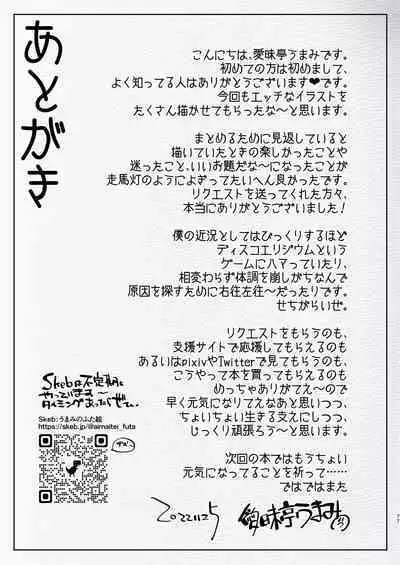 あとがき
こんにちは、愛味亭うまみです。
初めての方は初めまして、
よく知ってる人はありがとうございます❤です。
今回もエッチなイラストを
たくさん描かせてもらったな〜と思います。
まとめるために見返していると
描いていたときの楽しかったことや
迷ったこと、いいお題だな〜になったことが
走馬灯のようによぎってたいへん良かったです。
リクエストを送ってくれた方々、
本当にありがとうございました!
僕の近況としてはびっくりするほど
ディスコエリジウムという
ゲームにハマっていたり、
相変わらず体調を崩しがちなんで
原因を探すために右往左往〜だったりです。
せちがらいぜ。
リクエストをもらうのも、
支援サイトで応援してもらえるのも
あるいはpixivやTwitterで見てもらうのも、
こうやって本を買ってもらえるのも
めっちゃありがてえ〜ので
早く元気になりてえなあと思いつつ、
ちょいちょい生きる支えにしつつ、
じっくり頑張ろう〜と思います。
次回の本ではもうちょい
元気になってることを祈って……
ではではまた
Skebは不定期に
やっています
タイミングあったらぜひ。
Skeb:うまみのふた絵
https://skeb.jp/@aimaitei_futa
2022.11.25
愛味亭うまみ
77